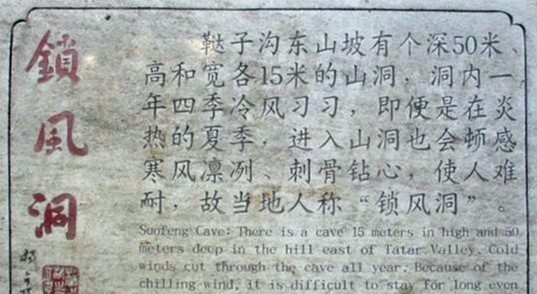 鎖風洞
鞑子沟东山坡有个深50米、
高和宽各15米的山洞，洞内一
年四季冷风习习，即便是在炎
热的夏季，进入山洞也会顿感
寒风凛冽、刺骨钻心，使人难
耐，故当地人称“锁风洞”。
Suofeng Cave: There is a cave 15 meters in high and 50
meters deep in the hill east of Tatar Valley. Cold
winds cut through the cave all year. Because of the
chilling wind, it is difficult to stay for long even